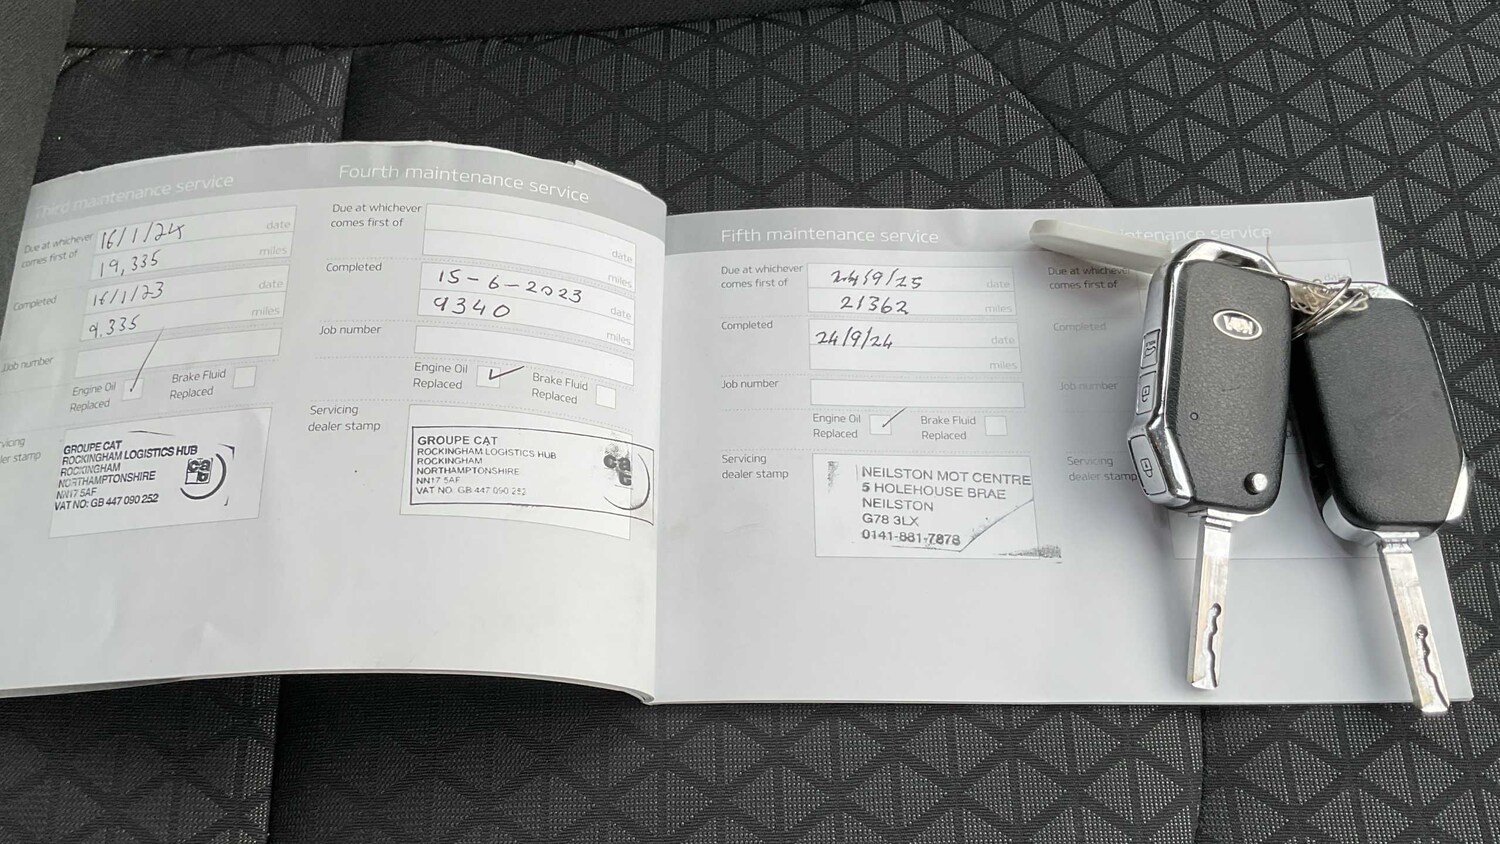 Third maintenance service
Due at whichever
comes first of
16/1/24
date
19,335
miles
Completed
16/1/23
date
9,335
miles
Job number
Engine Oil
Replaced
Brake Fluid
Replaced
GROUPE CAT
ROCKINGHAM LOGISTICS HUB
ROCKINGHAM
NORTHAMPTONSHIRE
NN17 5AF
VAT NO: GB 447 090 252
Fourth maintenance service
Due at whichever
comes first of
date
miles
Completed
15-6-2023
date
9340
miles
Job number
Engine Oil
Replaced
Brake Fluid
Replaced
Servicing
dealer stamp
GROUPE CAT
ROCKINGHAM LOGISTICS HUB
ROCKINGHAM
NORTHAMPTONSHIRE
NN17 5AF
VAT NO: GB 447 090 252
Fifth maintenance service
Due at whichever
comes first of
24/9/25
date
21362
miles
Completed
24/9/24
date
miles
Job number
Engine Oil
Replaced
Brake Fluid
Replaced
Servicing
dealer stamp
NEILSTON MOT CENTRE
5 HOLEHOUSE BRAE
NEILSTON
G78 3LX
0141-881-7878
maintenance service
Due at whichever
comes first of
date
Completed
Job number
Servicing
dealer stamp
KIA